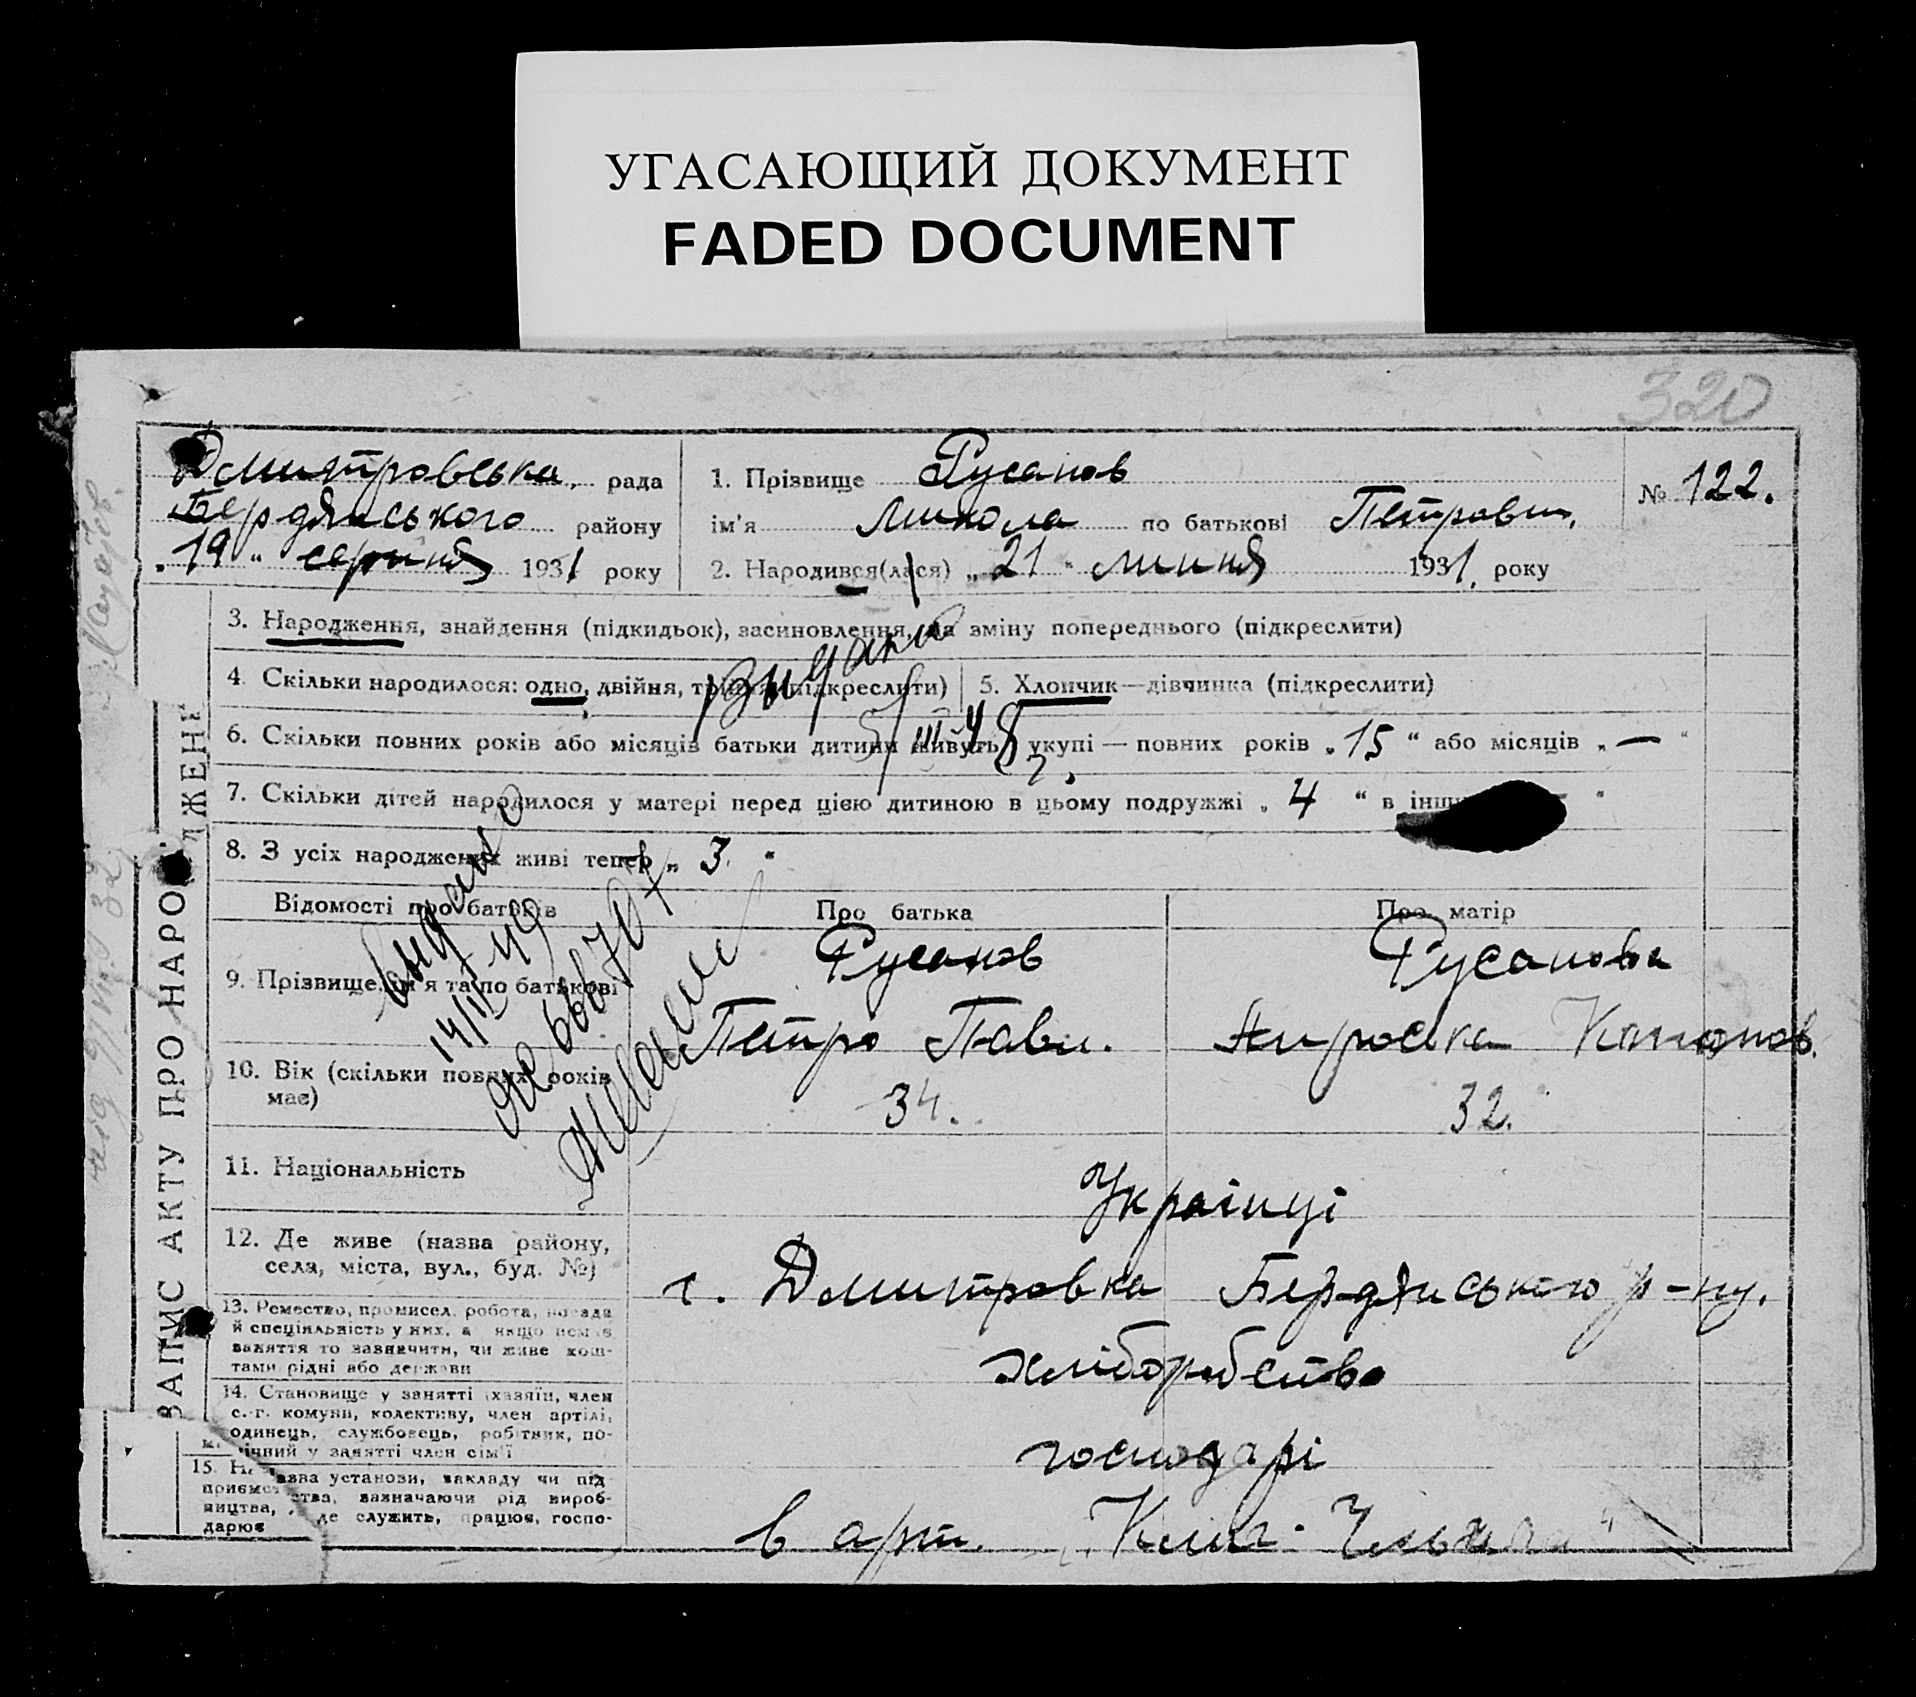 УГАСАЮЩИЙ ДОКУМЕНТ
FADED DOCUMENT
320
Дмитровська рада
Бердянського району
„19“ серпня 1931 року
1. Прізвище Русанов
ім'я Микола по батькові Петрович.
2. Народився(лася) „21“ липня 1931 року
№ 122.
ЗАПИС АКТУ ПРО НАРОДЖЕНН
3. Народження, знайдення (підкидьок), засиновлення, на зміну попереднього (підкреслити)
4. Скільки народилося: одно, двійня, трійня (підкреслити)
5. Хлопчик—дівчинка (підкреслити)
6. Скільки повних років або місяців батьки дитини живуть укупі — повних років „15“ або місяців „—“
7. Скільки дітей народилося у матері перед цією дитиною в цьому подружжі „4“ в інш
8. З усіх народжених живі тепер „3“
Відомості про батьків
Про батька
Про матір
9. Прізвище, ім'я та по батькові
Русанов
Петро Павл.
Русанова
10. Вік (скільки повних років має)
34.
32.
11. Національність
Українці
12. Де живе (назва району,
села, міста, вул., буд. №)
с. Дмитровка Бердянського р-ну.
13. Ремество, промисел, робота, посада
й спеціяльність у них, а якщо немає
заняття то зазначити, чи живе кош-
тами рідні або держави
хліборобство
14. Становище у занятті (хазяїн, член
с.-г. комуни, колективу, член артілі,
одинець, службовець, робітник, по-
мічний у занятті член сім'ї
господарі
15. Назва установи, закладу чи під
приємства, зазначаючи рід вироб-
ництва, де служить, працює, госпо-
дарює
в арт.
14/II 49